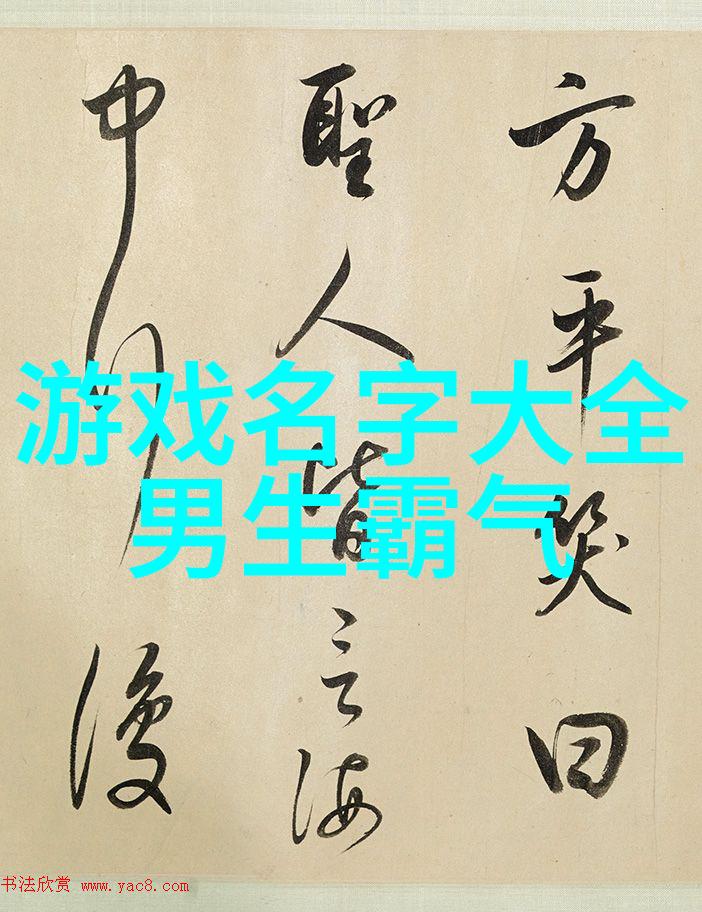 方平笑曰
聖人皆言海
中行復
游戏名字大全
男生霸气
书法欣赏 www.yac8.com